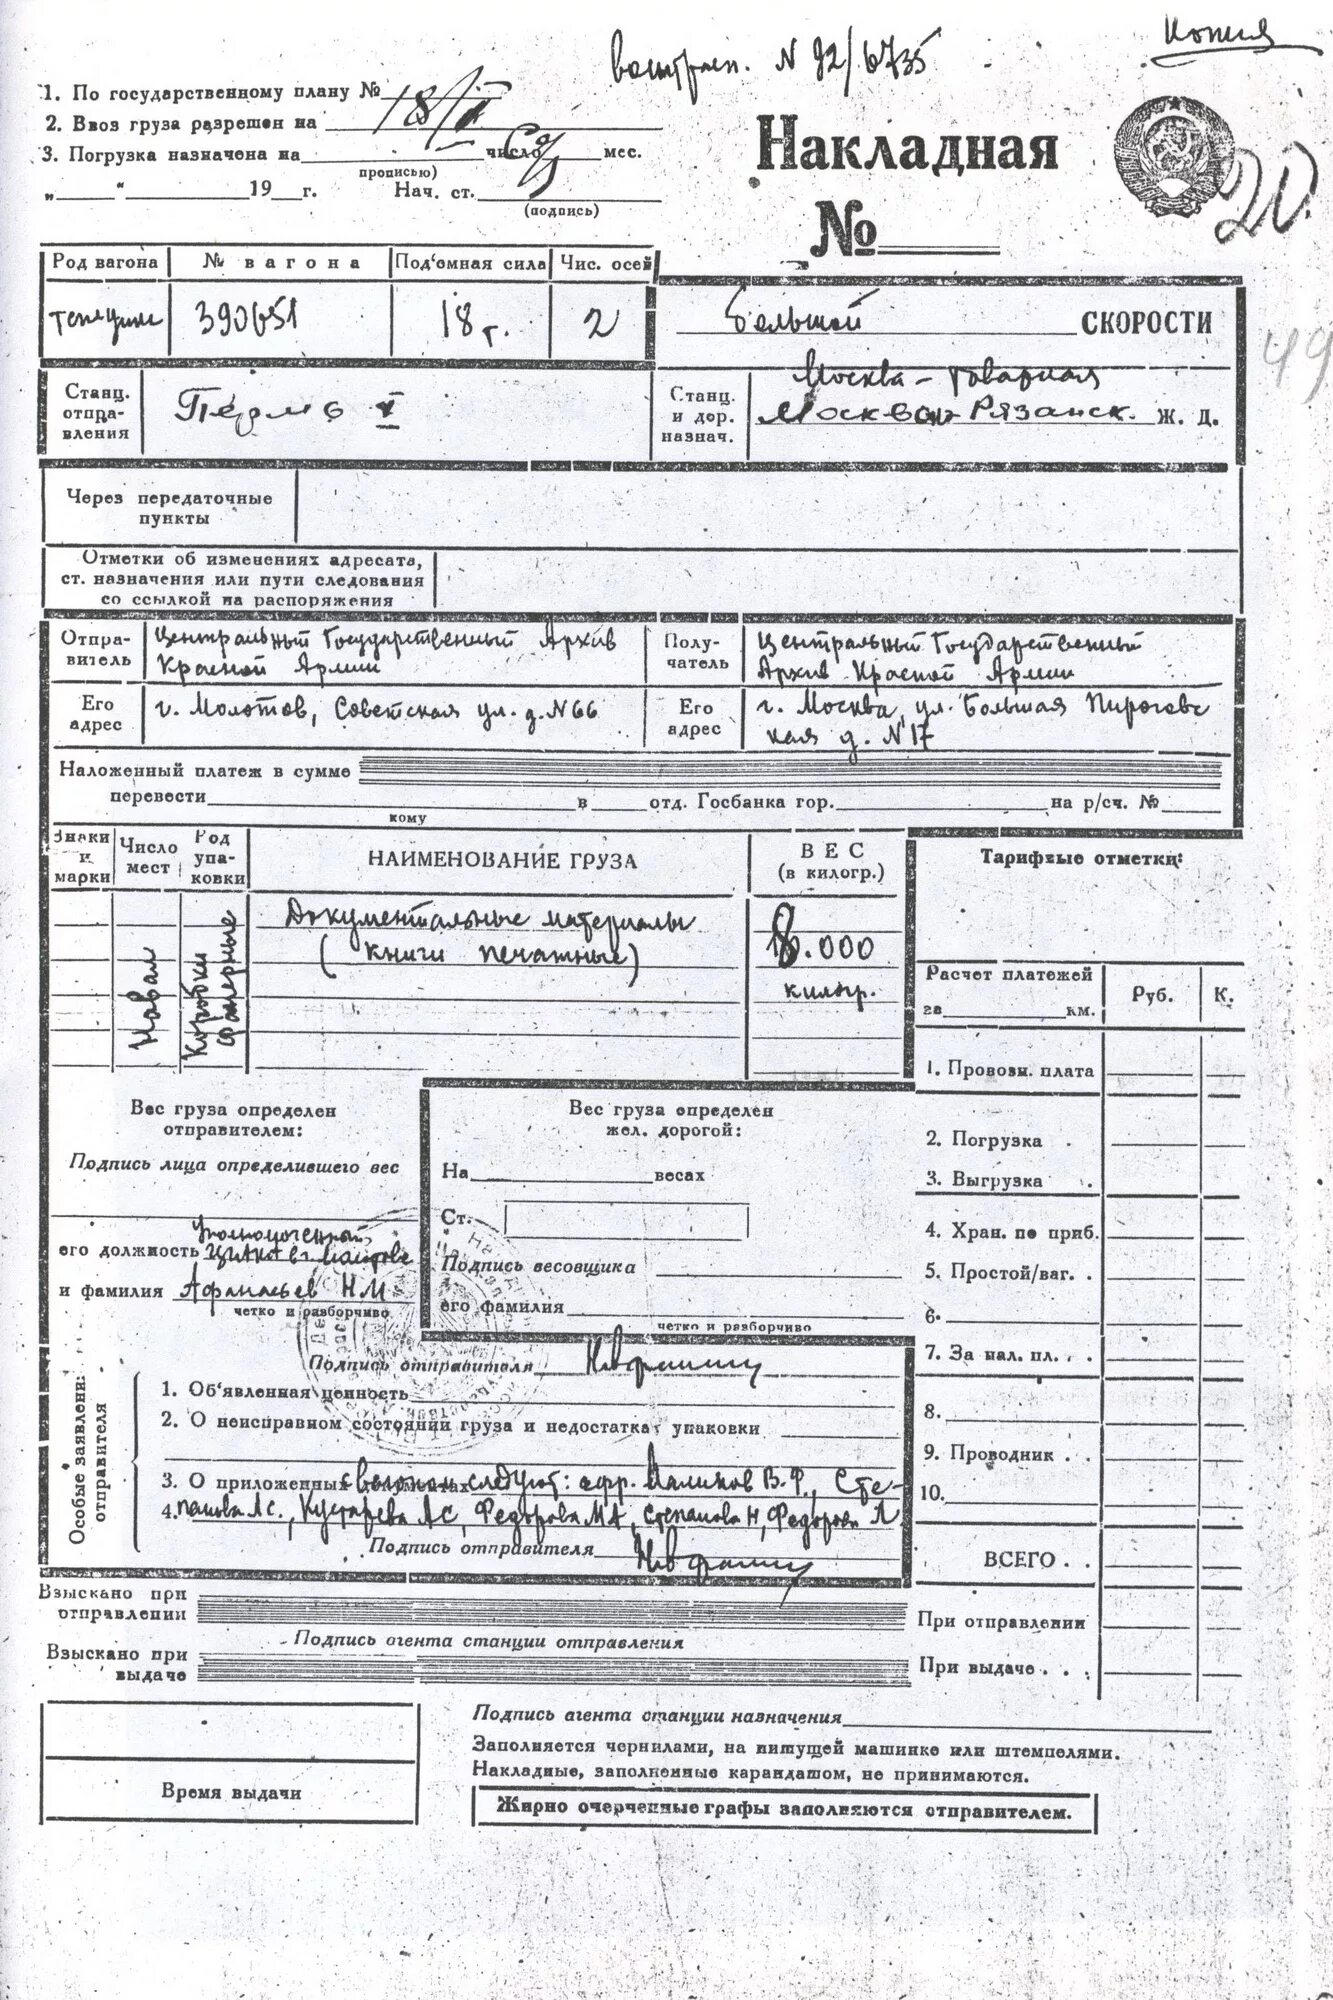 Копия
N 92/6735
1. По государственному плану №
18/II
2. Ввоз груза разрешен на
3. Погрузка назначена на число мес.
прописью)
„ “ 19 г. Нач. ст.
(подпись)
Накладная
№
20.
49
Род вагона № вагона Под'омная сила Чис. осей
390651 18 т. 2
Большой СКОРОСТИ
Станц. отпра-вления
Пермь II
Станц. и дор. назнач.
Москва - товарная
Московско-Рязанск. Ж. Д.
Через передаточные
пункты
Отметки об изменениях адресата,
ст. назначения или пути следования
со ссылкой на распоряжения
Отпра-витель
Центральный Государственный Архив
Красной Армии
Полу-чатель
Центральный Государственный
Архив Красной Армии
Его адрес
г. Молотов, Советская ул. д. N 66
Его адрес
г. Москва, ул. Большая Пирогавс
кая д. N 17
Наложенный платеж в сумме
перевести в отд. Госбанка гор. на р/сч. №
кому
Знаки и марки
Число мест
Род упа-ковки
НАИМЕНОВАНИЕ ГРУЗА
ВЕС
(в килогр.)
Навал
Коробки
фанерные
Документальные материалы
(книги печатные)
8.000
килогр.
Тарифные отметки:
Расчет платежей
за км.
Руб. К.
1. Провозн. плата
2. Погрузка
3. Выгрузка
4. Хран. по приб.
5. Простой/ваг.
6.
7. За нал. пл.
8.
9. Проводник
10.
ВСЕГО
При отправлении
При выдаче
Вес груза определен
отправителем:
Подпись лица определившего вес
Уполномоченный
его должность ЦГАКА в г. Молотове
и фамилия Афанасьев Н М
четко и разборчиво
Вес груза определен
жел. дорогой:
На весах
Ст.
Подпись весовщика
его фамилия
четко и разборчиво
Подпись отправителя
Особые заявлени:
отправителя
1. Об'явленная ценность
2. О неисправном состоянии груза и недостатках упаковки
3. О приложенных документах
с вагоном следуют: Маликов В. Ф., Сте-
4. панова А с., Кустарева А С, Федорова М А, Степанова Н, Федорова Л
Подпись отправителя
Взыскано при
отправлении
Подпись агента станции отправления
Взыскано при
выдаче
Время выдачи
Подпись агента станции назначения
Заполняется чернилами, на пишущей машинке или штемпелями.
Накладные, заполненные карандашом, не принимаются.
Жирно очерченные графы заполняются отправителем.